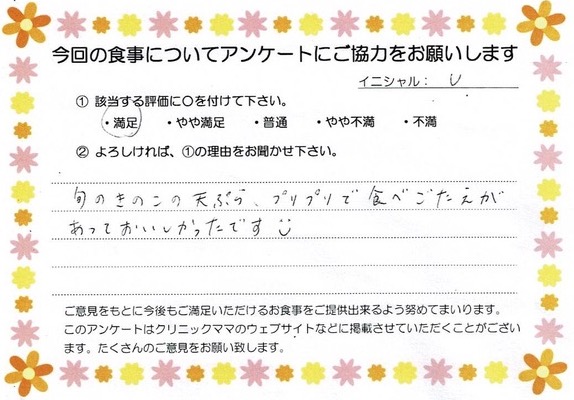 今回の食事についてアンケートにご協力をお願いします
イニシャル： U
① 該当する評価に〇を付けて下さい。
・満足 ・やや満足 ・普通 ・やや不満 ・不満
② よろしければ、①の理由をお聞かせ下さい。
旬のきのこの天ぷら、プリプリで食べごたえが
あっておいしかったです
ご意見をもとに今後もご満足いただけるお食事をご提供出来るよう努めてまいります。
このアンケートはクリニックママのウェブサイトなどに掲載させていただくことがござい
ます。たくさんのご意見をお願い致します。